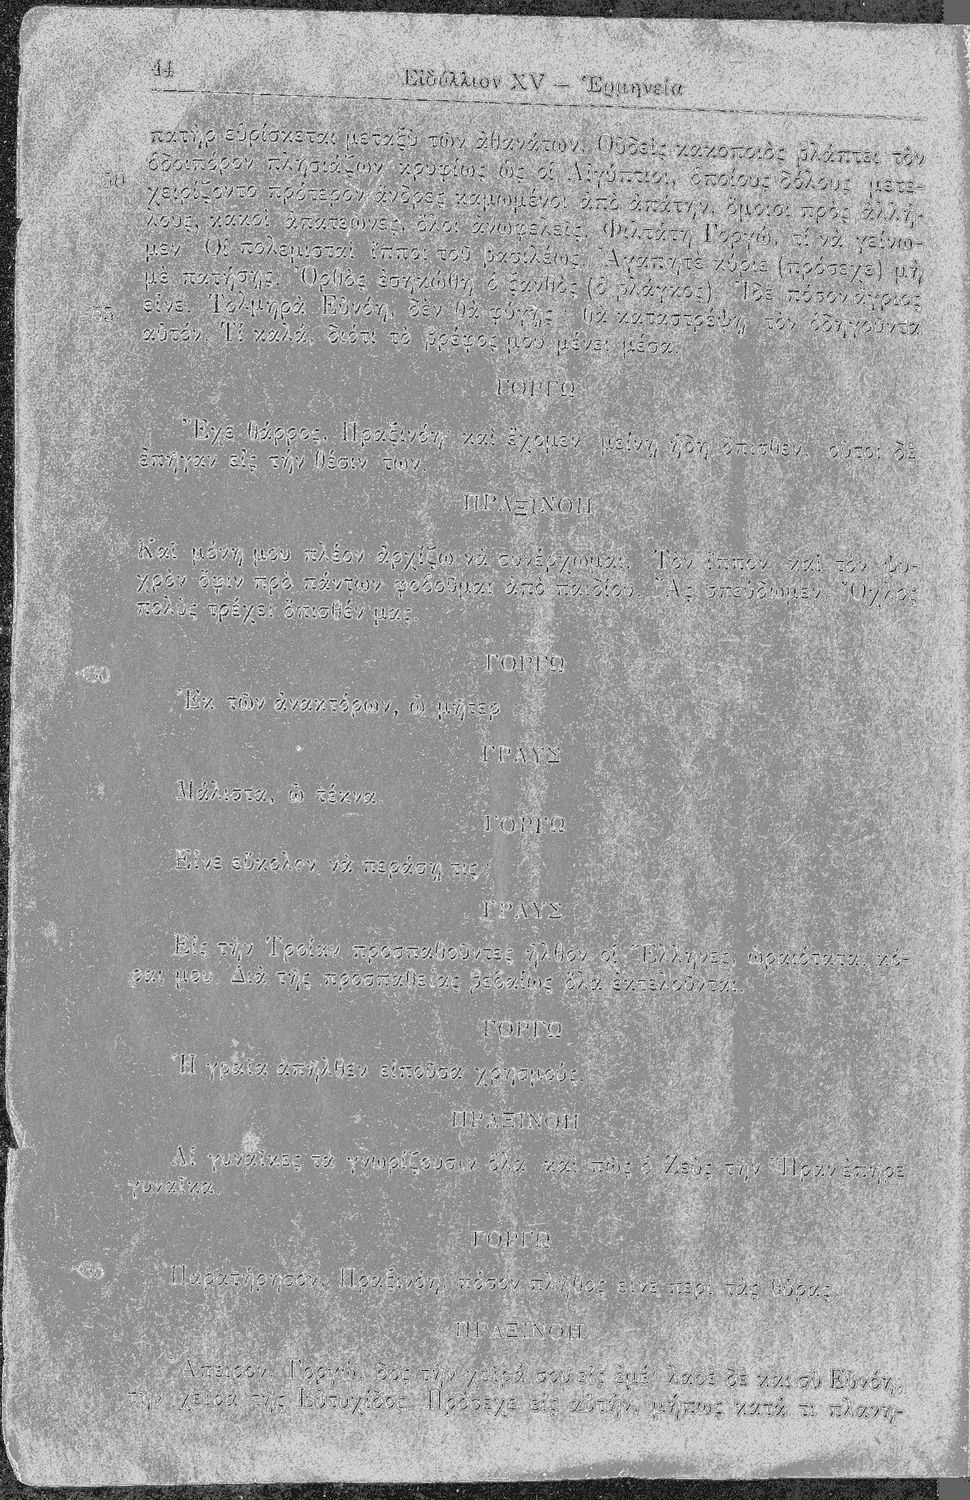 44
Εἰδύλλιον XV — Ἑρμηνεία
πατὴρ εὑρίσκεται μεταξὺ τῶν ἀθανάτων. Οὐδεὶς κακοποιὸς βλάπτει τὸν
ὁδοιπόρον πλησιάζων κρυφίως ὡς οἱ Αἰγύπτιοι, ὁποίους δόλους μετε-
50
χειρίζοντο πρότερον ἄνδρες καμωμένοι ἀπὸ ἀπάτην, ὅμοιοι πρὸς ἀλλή-
λους, κακοὶ ἀπατεῶνες, ὅλοι ἀνωφελεῖς. Φιλτάτη Γοργώ, τί νὰ γείνω-
μεν; Οἱ πολεμισταὶ ἵπποι τοῦ βασιλέως. Ἀγαπητὲ κύριε (πρόσεχε) μὴ
μὲ πατήσῃς. Ὀρθὸς ἐσηκώθη ὁ ξανθὸς (ὁ βλάγκος). Ἰδὲ πόσον ἄγριος
εἶνε. Τολμηρὰ Εὐνόη, δὲν θὰ φύγῃς; θὰ καταστρέψῃ τὸν ὁδηγοῦντα
αὐτόν. Τί καλά, διότι τὸ βρέφος μου μένει μέσα.
ΓΟΡΓΩ
Ἔχε θάρρος, Πραξινόη· καὶ ἔχομεν μείνῃ ἤδη ὄπισθεν, οὗτοι δὲ
ἐπῆγαν εἰς τὴν θέσιν των.
ΠΡΑΞΙΝΟΗ
Καὶ μόνη μου πλέον ἀρχίζω νὰ συνέρχωμαι. Τὸν ἵππον καὶ τὸν ψυ-
χρὸν ὄφιν πρὸ πάντων φοβοῦμαι ἀπὸ παιδίου. Ἂς σπεύδωμεν. Ὄχλος
πολὺς τρέχει ὄπισθέν μας.
60
ΓΟΡΓΩ
Ἐκ τῶν ἀνακτόρων, ὦ μῆτερ;
ΓΡΑΥΣ
Μάλιστα, ὦ τέκνα.
ΓΟΡΓΩ
Εἶνε εὔκολον νὰ περάσῃ τις;
ΓΡΑΥΣ
Εἰς τὴν Τροίαν προσπαθοῦντες ἦλθον οἱ Ἕλληνες, ὡραιόταται κό-
ραι μου. Διὰ τῆς προσπαθείας βεβαίως ὅλα ἐκτελοῦνται.
ΓΟΡΓΩ
Ἡ γραῖα ἀπῆλθεν εἰποῦσα χρησμούς.
ΠΡΑΞΙΝΟΗ
Αἱ γυναῖκες τὰ γνωρίζουσιν ὅλα καὶ πῶς ὁ Ζεὺς τὴν Ἥραν ἐπῆρε
γυναῖκα.
ΓΟΡΓΩ
65
Παρατήρησον, Πραξινόη, πόσον πλῆθος εἶνε περὶ τὰς θύρας.
ΠΡΑΞΙΝΟΗ
Ἄπειρον. Γοργώ, δὸς τὴν χεῖρά σου εἰς ἐμέ· λαβὲ δὲ καὶ σὺ Εὐνόη,
τὴν χεῖρα τῆς Εὐτυχίδος. Πρόσεχε εἰς αὐτήν, μήπως κατά τι πλανη-